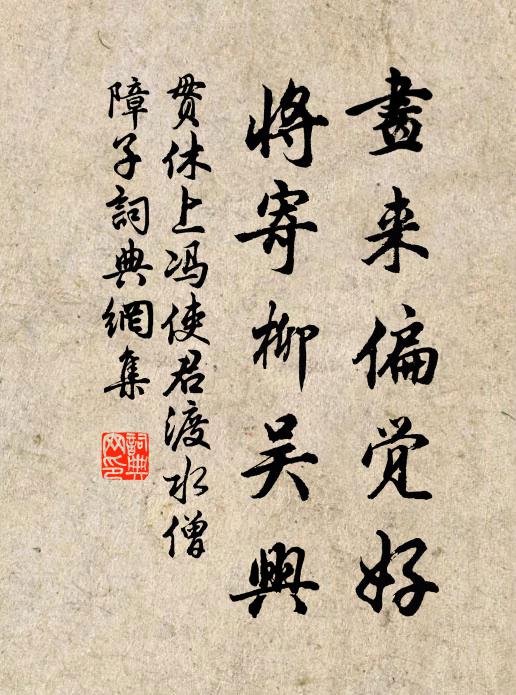 畫来偏覺好
將寄柳吴興
貫休上冯使君渡水僧
障子詞典網集
詞典网印